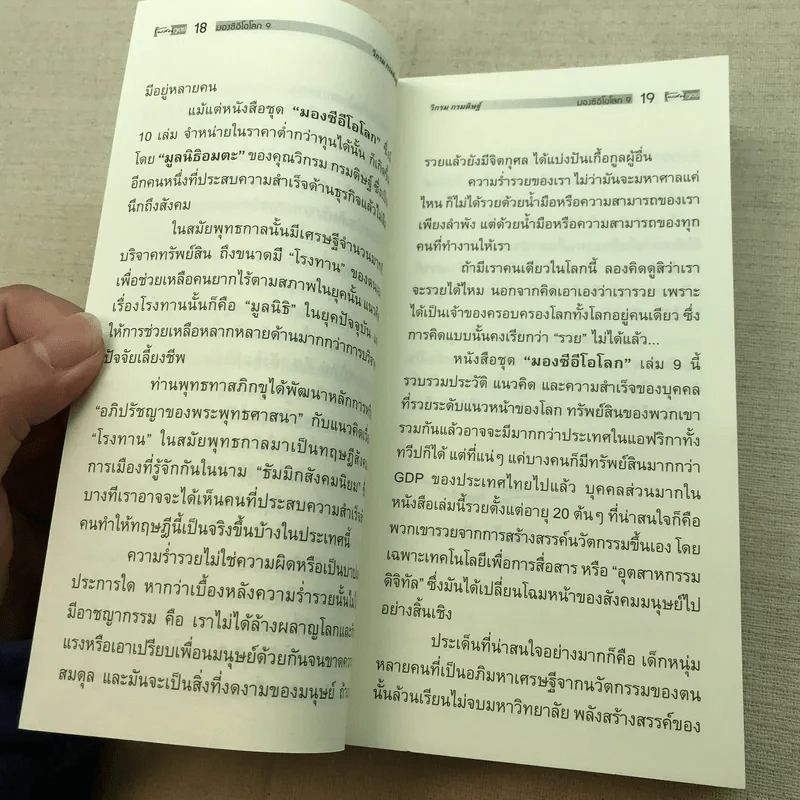 18 มองซีอีโอโลก 9
วิกรม กรมดิษฐ์
มีอยู่หลายคน
แม้แต่หนังสือชุด “มองซีอีโอโลก”
10 เล่ม จำหน่ายในราคาต่ำกว่าทุนได้นั้น ก็
โดย “มูลนิธิอมตะ” ของคุณวิกรม กรมดิษฐ์ ซึ่ง
อีกคนหนึ่งที่ประสบความสำเร็จด้านธุรกิจแล้ว
นึกถึงสังคม
ในสมัยพุทธกาลนั้นมีเศรษฐีจำนวนมาก
บริจาคทรัพย์สิน ถึงขนาดมี “โรงทาน” ของ
เพื่อช่วยเหลือคนยากไร้ตามสภาพในยุคนั้น
เรื่องโรงทานนั้นก็คือ “มูลนิธิ” ในยุคปัจจุบัน
ให้การช่วยเหลือหลากหลายด้านมากกว่าการ
ปัจจัยเลี้ยงชีพ
ท่านพุทธทาสภิกขุได้พัฒนาหลักการ
“อภิปรัชญาของพระพุทธศาสนา” กับแนวคิด
“โรงทาน” ในสมัยพุทธกาลมาเป็นทฤษฎีสังคม
การเมืองที่รู้จักกันในนาม “ธัมมิกสังคมนิยม”
บางทีเราอาจจะได้เห็นคนที่ประสบความสำเร็จ
คนทำให้ทฤษฎีนี้เป็นจริงขึ้นบ้างในประเทศนี้
ความร่ำรวยไม่ใช่ความผิดหรือเป็นบาป
ประการใด หากว่าเบื้องหลังความร่ำรวยนั้น
มีอาชญากรรม คือ เราไม่ได้ล้างผลาญโลกและ
แรงหรือเอาเปรียบเพื่อนมนุษย์ด้วยกันจนขาด
สมดุล และมันจะเป็นสิ่งที่งดงามของมนุษย์
วิกรม กรมดิษฐ์ มองซีอีโอโลก 9 19
รวยแล้วยังมีจิตกุศล ได้แบ่งปันเกื้อกูลผู้อื่น
ความร่ำรวยของเรา ไม่ว่ามันจะมหาศาลแค่
ไหน ก็ไม่ได้รวยด้วยน้ำมือหรือความสามารถของเรา
เพียงลำพัง แต่ด้วยน้ำมือหรือความสามารถของทุก
คนที่ทำงานให้เรา
ถ้ามีเราคนเดียวในโลกนี้ ลองคิดดูสิว่าเรา
จะรวยได้ไหม นอกจากคิดเอาเองว่าเรารวย เพราะ
ได้เป็นเจ้าของครอบครองโลกทั้งโลกอยู่คนเดียว ซึ่ง
การคิดแบบนั้นคงเรียกว่า “รวย” ไม่ได้แล้ว...
หนังสือชุด “มองซีอีโอโลก” เล่ม 9 นี้
รวบรวมประวัติ แนวคิด และความสำเร็จของบุคคล
ที่รวยระดับแนวหน้าของโลก ทรัพย์สินของพวกเขา
รวมกันแล้วอาจจะมีมากกว่าประเทศในแอฟริกาทั้ง
ทวีปก็ได้ แต่ที่แน่ๆ แค่บางคนก็มีทรัพย์สินมากกว่า
GDP ของประเทศไทยไปแล้ว บุคคลส่วนมากใน
หนังสือเล่มนี้รวยตั้งแต่อายุ 20 ต้นๆ ที่น่าสนใจก็คือ
พวกเขารวยจากการสร้างสรรค์นวัตกรรมขึ้นเอง โดย
เฉพาะเทคโนโลยีเพื่อการสื่อสาร หรือ “อุตสาหกรรม
ดิจิทัล” ซึ่งมันได้เปลี่ยนโฉมหน้าของสังคมมนุษย์ไป
อย่างสิ้นเชิง
ประเด็นที่น่าสนใจอย่างมากก็คือ เด็กหนุ่ม
หลายคนที่เป็นอภิมหาเศรษฐีจากนวัตกรรมของตน
นั้นล้วนเรียนไม่จบมหาวิทยาลัย พลังสร้างสรรค์ของ